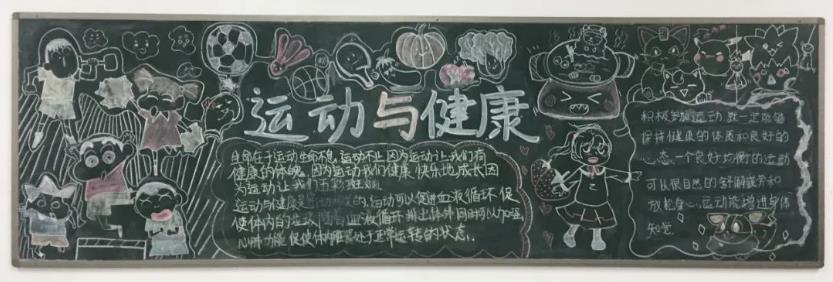 运动与健康
生命在于运动生命不息,运动不止,因为运动让我们有
健康的体魄,因为运动我们健康、快乐地成长因
为运动让我们
运动与健康是的,运动可以促进血液循环,促
使体内的垃圾随着血液循环排出体外同时可以加强
心肺功能,促使体内处于正常运转的状态.
积极参加运动,就一定能够
保持健康的体质和良好的
心态,一个良好均衡的运动
可以很自然的舒解疲劳和
放松身心,运动能增进身体
知觉